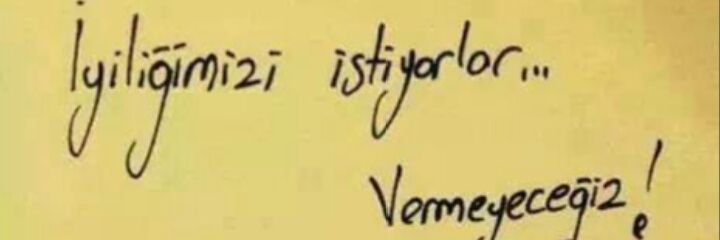 İyiliğimizi istiyorlar...
Vermeyeceğiz!